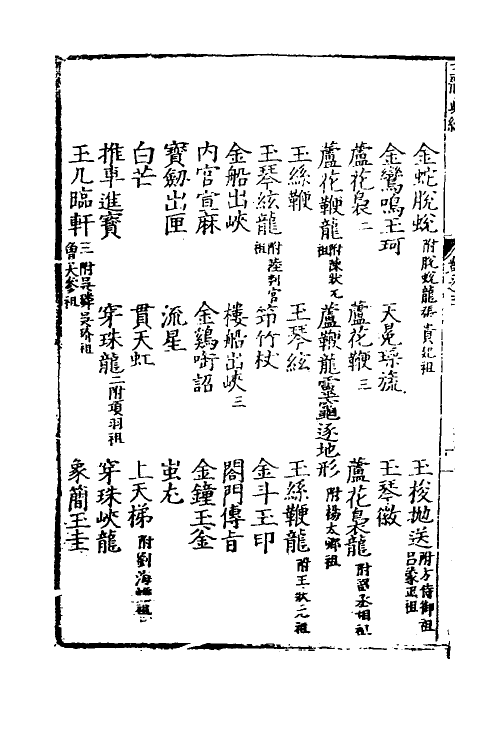 金蛇脫蛻 附脫蛻龍張貴妃祖 玉梭抛送 附方侍御祖呂蒙正祖
金鸞鳴玉珂 天冕垂旒 玉琴徽
蘆花裊 二 蘆花鞭 三 蘆花裊龍 附留丞相祖
蘆花鞭龍 附陳狀元祖 蘆鞭龍 靈龜逐地形 附楊太鄉祖
玉絲鞭 玉琴絃 玉絲鞭龍 附王狀元祖
玉琴絃龍 附陸判官祖 笻竹杖 金斗玉印
金船出峽 樓船出峽 三 閤門傳旨
内官宣麻 金鷄啣詔 金鐘玉釜
寶劒出匣 流星 蚩尤
白芒 貫天虹 上天梯 附劉海蟾祖
推車進寳 穿珠龍 二附項羽祖 穿珠峽龍
玉几臨軒 三 附吳璘吳玠祖曾大參祖 象簡玉圭